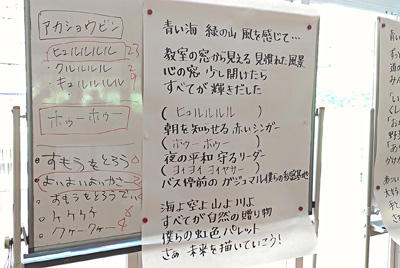 アカショウビン
ヒュルルルル 23
・クルルルル 2
・キュルルルル 9
ホゥーホゥー
・すもうをとろう
・よいよいよいかさー
・すもうをとろうでい
・ケケケケ
・クァークァー
青い海 緑の山 風を感じて…
教室の窓から見える 見慣れた風景
心の窓 少し開けたら
すべてが輝きだした
(ヒュルルルル)
朝を知らせる 赤いシンガー
(ホゥー ホゥー)
夜の平和 守るリーダー
(ヨイ ヨイ ヨイヤサー)
バス停前の ガジュマル 僕らの秘密基地
海よ空よ 山よ川よ
すべてが 自然の贈り物
僕らの虹色パレット
さぁ 未来を描いていこう!